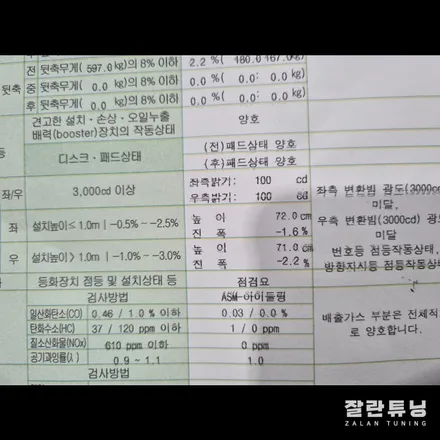 전 뒷축무게( 597.0 kg)의 8% 이하 2.2 %( 180.0 167.0 kg)
뒷축 중 뒷축무게( 0.0 kg)의 8% 이하 0.0 %( 0.0: 0.0 kg)
후 뒷축무게( 0.0 kg)의 8% 이하 0.0 %( 0.0: 0.0 kg)
견고한 설치·손상·오일누출
배력(booster)장치의 작동상태 양호
등 디스크·패드상태 (전)패드상태 양호
(후)패드상태 양호
좌/우 3,000cd 이상 좌측밝기: 100 cd
우측밝기: 100 cd
좌 설치높이≤1.0m -0.5% ~ -2.5% 높 이 72.0 cm
진 폭 -1.6 %
우 설치높이>1.0m -1.0% ~ -3.0% 높 이 71.0 cm
진 폭 -2.2 %
좌측 변환빔 광도(3000cd
미달,
우측 변환빔(3000cd) 광도
미달
번호등 점등작동상태,
방향지시등 점등작동상태
등화장치 점등 및 설치상태 등 점검요
검사방법 ASM-아이들링
일산화탄소(CO) 0.46 / 1.0 % 이하 0.03 / 0.0 %
탄화수소(HC) 37 / 120 ppm 이하 1 / 0 ppm
질소산화물(NOx) 610 ppm 이하 0 ppm
공기과잉률(λ) 0.9 ~ 1.1 1.0
검사방법
배출가스 부분은 전체적으
로 양호합니다.
잘란튜닝
ZALAN TUNING